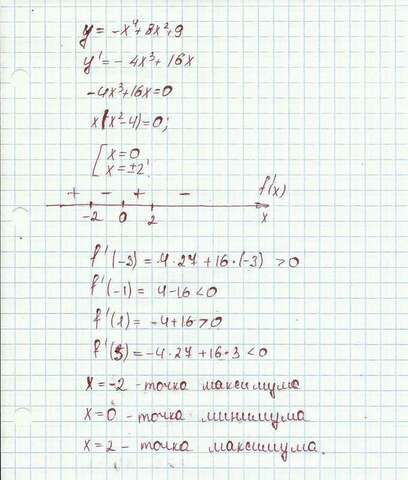 y = -x⁴+8x²+9
y' = -4x³+16x
-4x³+16x=0
x(x²-4)=0;
[x=0
x=±2.
+ - + - f'(x)
-2 0 2 x
f'(-3) = 4·27+16·(-3) >0
f'(-1) = 4-16<0
f'(1) = -4+16>0
f'(3) = -4·27+16·3<0
x=-2 - точка максимума
x=0 - точка минимума
x=2 - точка максимума.